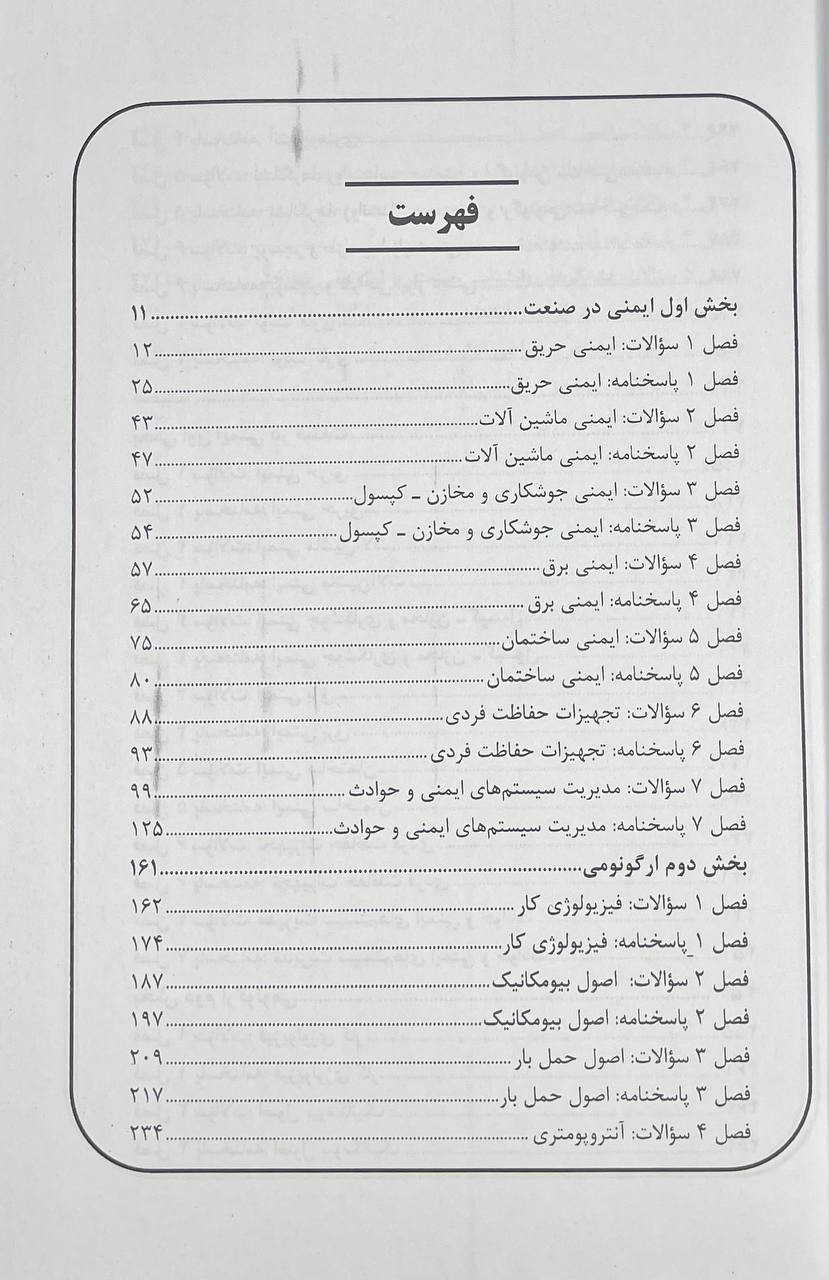 فهرست
بخش اول ایمنی در صنعت ۱۱
فصل ۱ سؤالات: ایمنی حریق ۱۲
فصل ۱ پاسخنامه: ایمنی حریق ۲۵
فصل ۲ سؤالات: ایمنی ماشین آلات ۴۳
فصل ۲ پاسخنامه: ایمنی ماشین آلات ۴۷
فصل ۳ سؤالات: ایمنی جوشکاری و مخازن ـ کپسول ۵۲
فصل ۳ پاسخنامه: ایمنی جوشکاری و مخازن ـ کپسول ۵۴
فصل ۴ سؤالات: ایمنی برق ۵۷
فصل ۴ پاسخنامه: ایمنی برق ۶۵
فصل ۵ سؤالات: ایمنی ساختمان ۷۵
فصل ۵ پاسخنامه: ایمنی ساختمان ۸۰
فصل ۶ سؤالات: تجهیزات حفاظت فردی ۸۸
فصل ۶ پاسخنامه: تجهیزات حفاظت فردی ۹۳
فصل ۷ سؤالات: مدیریت سیستم‌های ایمنی و حوادث ۹۹
فصل ۷ پاسخنامه: مدیریت سیستم‌های ایمنی و حوادث ۱۲۵
بخش دوم ارگونومی ۱۶۱
فصل ۱ سؤالات: فیزیولوژی کار ۱۶۲
فصل ۱_پاسخنامه: فیزیولوژی کار ۱۷۴
فصل ۲ سؤالات: اصول بیومکانیک ۱۸۷
فصل ۲ پاسخنامه: اصول بیومکانیک ۱۹۷
فصل ۳ سؤالات: اصول حمل بار ۲۰۹
فصل ۳ پاسخنامه: اصول حمل بار ۲۱۷
فصل ۴ سؤالات: آنتروپومتری ۲۳۴